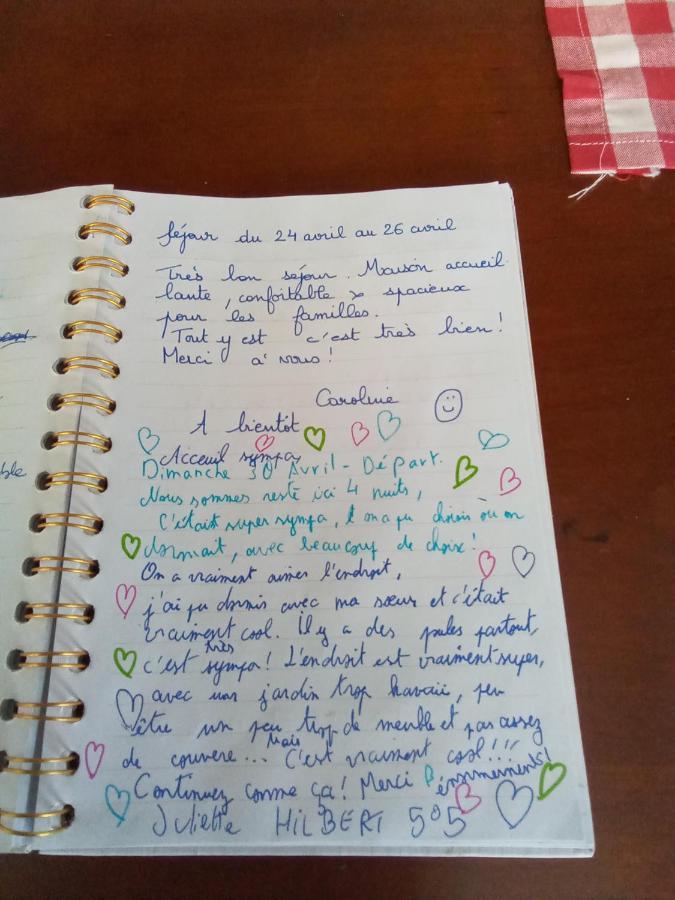 Séjour du 24 avril au 26 avril
Très bon séjour. Maison accueil
lante, confortable & spacieux
pour les familles.
Tout y est c'est très bien!
Merci à vous!
Caroline
A bientôt
Acceuil sympa
Dimanche 30 Avril - Départ.
Nous sommes resté ici 4 nuits,
C'était super sympa, on a pu choisir où on
dormait, avec beaucoup de choix!
On a vraiment aimer l'endroit,
j'ai pu dormir avec ma sœur et c'était
vraiment cool. Il y a des partout,
c'est très sympa! L'endroit est vraiment super,
avec un jardin trop, peu
être un peu trop de meuble et pas assez
de couvere... Mais C'est vraiment cool!!!
Continuez comme ça! Merci énormements!
Juliette HILBERT
ble